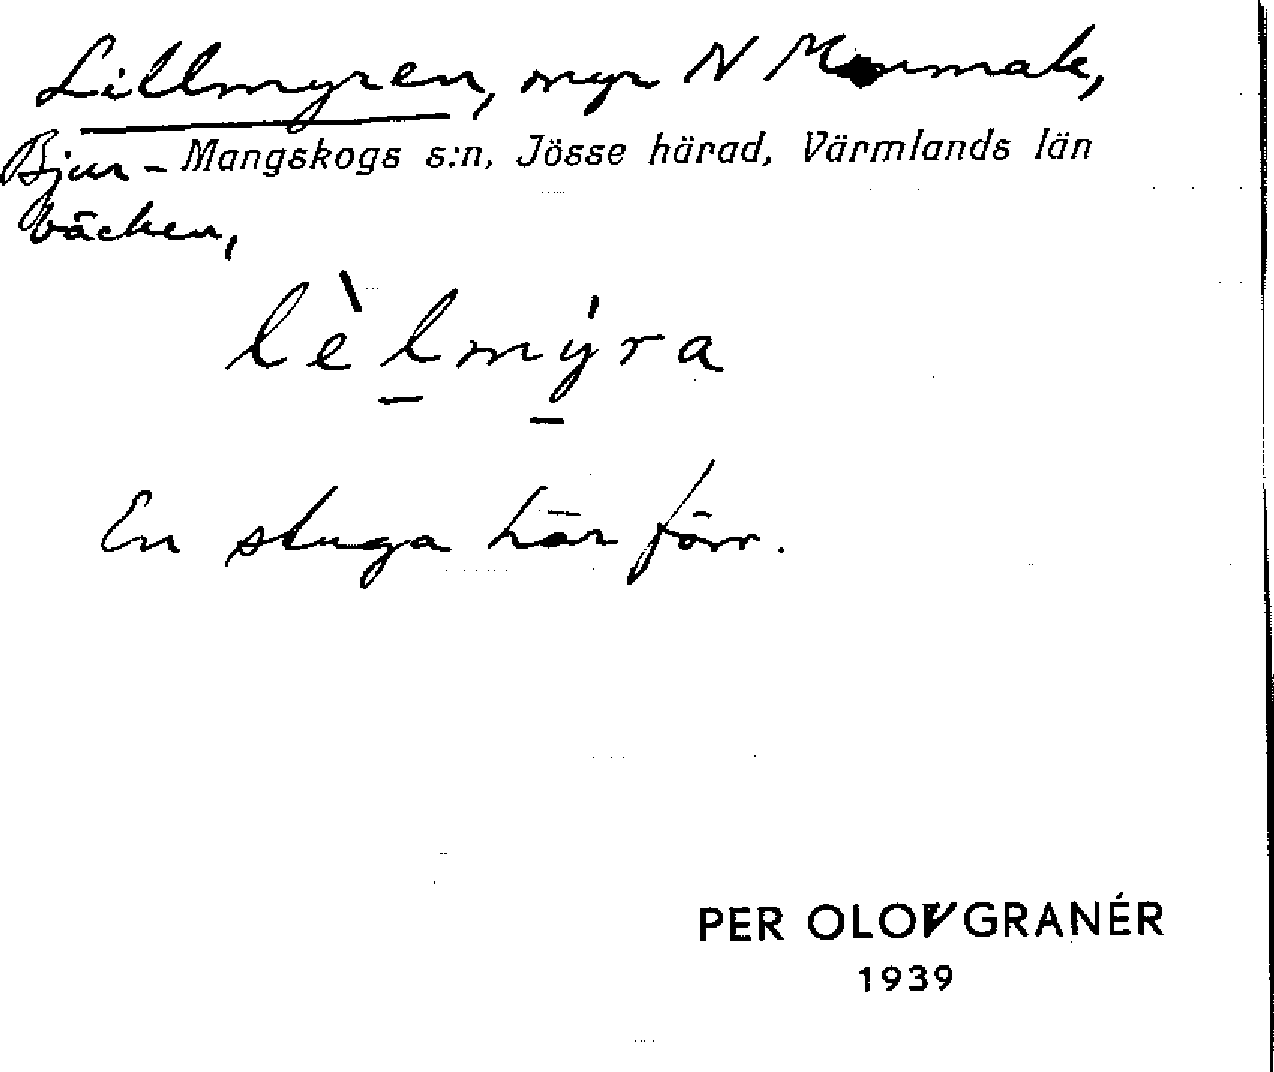 Lillmyren, myr N
Bjur- Mangskogs s:n, Jösse härad, Värmlands län
bäcken,
lèlmýra
En stuga här förr.
PER OLOV GRANÉR
1939